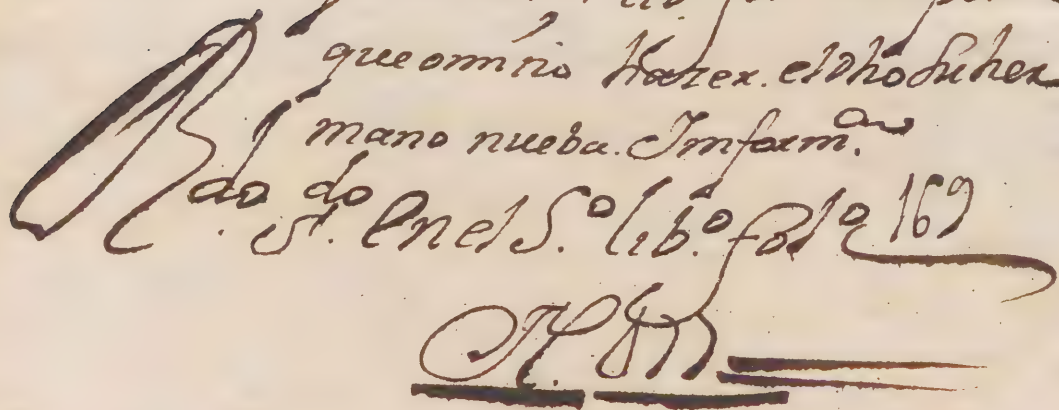 que omitio hazer. el dho Su her
mano nueba. Imform.on
R.do S.do En el S.o lib.o fol.o 169